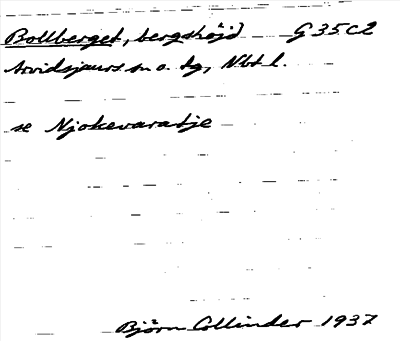 Bollberget, bergshöjd G 35 C2
Arvidsjaurs sn o. tg, Nbt l.
se Njokevaratje
Björn Collinder 1937